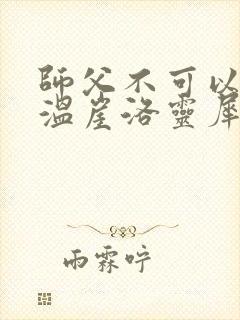 師父不可以
溫崖洛靈犀
雨霖咛